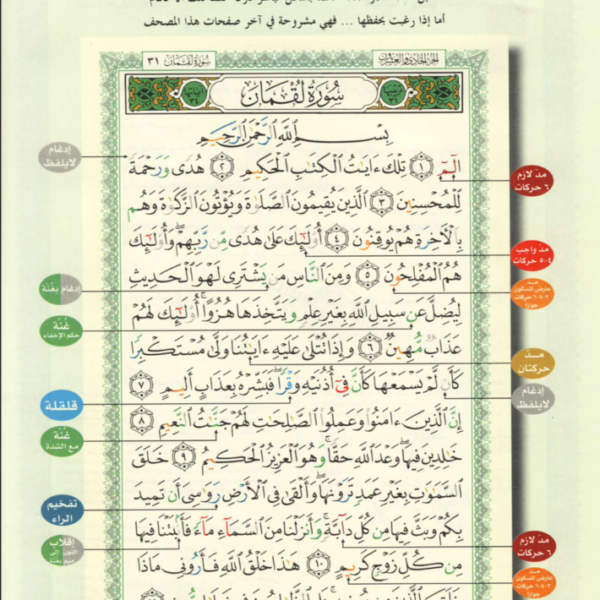 أما إذا رغبت بحفظها ... فهي مشروحة في آخر صفحات هذا المصحف
سُورَةُ لُقْمَان ٣١
الجزء الحادي والعشرون
سُورَةُ لُقْمَان
بِسْمِ اللَّهِ الرَّحْمَٰنِ الرَّحِيمِ
الٓمٓ ١ تِلْكَ ءَايَٰتُ الْكِتَٰبِ الْحَكِيمِ ٢ هُدًى وَرَحْمَةً
لِّلْمُحْسِنِينَ ٣ الَّذِينَ يُقِيمُونَ الصَّلَوٰةَ وَيُؤْتُونَ الزَّكَوٰةَ وَهُم
بِالْأَخِرَةِ هُمْ يُوقِنُونَ ٤ أُوْلَٰٓئِكَ عَلَىٰ هُدًى مِّن رَّبِّهِمْ وَأُوْلَٰٓئِكَ
هُمُ الْمُفْلِحُونَ ٥ وَمِنَ النَّاسِ مَن يَشْتَرِي لَهْوَ الْحَدِيثِ
لِيُضِلَّ عَن سَبِيلِ اللَّهِ بِغَيْرِ عِلْمٍ وَيَتَّخِذَهَا هُزُوًا أُوْلَٰٓئِكَ لَهُمْ
عَذَابٌ مُّهِينٌ ٦ وَإِذَا تُتْلَىٰ عَلَيْهِ ءَايَٰتُنَا وَلَّىٰ مُسْتَكْبِرًا
كَأَن لَّمْ يَسْمَعْهَا كَأَنَّ فِيٓ أُذُنَيْهِ وَقْرًا فَبَشِّرْهُ بِعَذَابٍ أَلِيمٍ ٧
إِنَّ الَّذِينَ ءَامَنُوا وَعَمِلُوا الصَّٰلِحَٰتِ لَهُمْ جَنَّٰتُ النَّعِيمِ ٨
خَٰلِدِينَ فِيهَا وَعْدَ اللَّهِ حَقًّا وَهُوَ الْعَزِيزُ الْحَكِيمُ ٩ خَلَقَ
السَّمَٰوَٰتِ بِغَيْرِ عَمَدٍ تَرَوْنَهَا وَأَلْقَىٰ فِي الْأَرْضِ رَوَٰسِيَ أَن تَمِيدَ
بِكُمْ وَبَثَّ فِيهَا مِن كُلِّ دَآبَّةٍ وَأَنزَلْنَا مِنَ السَّمَآءِ مَآءً فَأَنۢبَتْنَا فِيهَا
مِن كُلِّ زَوْجٍ كَرِيمٍ ١٠ هَٰذَا خَلْقُ اللَّهِ فَأَرُونِي مَاذَا
إدغام لايلفظ
إدغام بغنّة
غنّة حكم الإخفاء
قلقلة
غنّة مع الشدة
تفخيم الراء
إقلاب
مدّ لازم ٦ حركات
مد واجب ٤-٥ حركات
مد عارض للسكون ٢-٤-٦ حركات جوازا
مد حركتان
إدغام لايلفظ
مدّ لازم ٦ حركات
مد عارض للسكون ٢-٤-٦ حركات